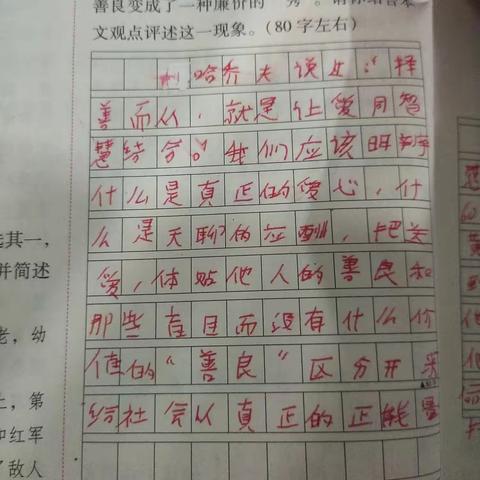 善良变成了一种廉价的“秀”。请你结合本
文观点评述这一现象。(80字左右)
哈乔夫说过:“择
善而从,就是让爱同智
慧结合。”我们应该明辨
什么是真正的爱心,什
么是无聊的应酬,把关
爱,体贴他人的善良和
那些盲目而没有什么价
值的“善良”区分开来
给社会以真正的正能量
选其一,
并简述
老,幼
上,第
和红军
了敌人